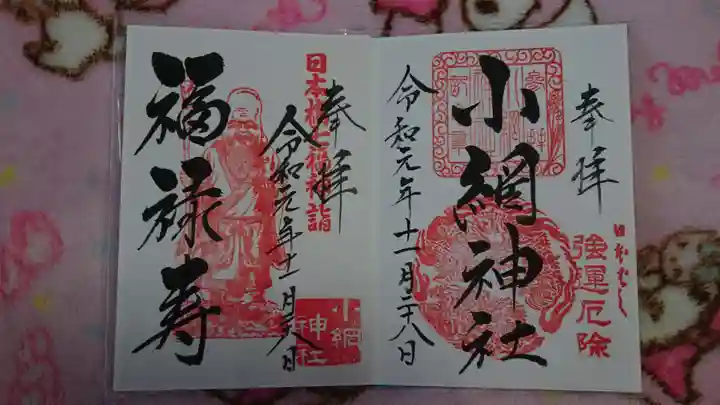 奉拝
日本ばし
強運厄除
小網神社
令和元年十一月二十八日
奉拝
日本橋七福神詣
令和元年十一月二十八日
福禄寿
小網神社